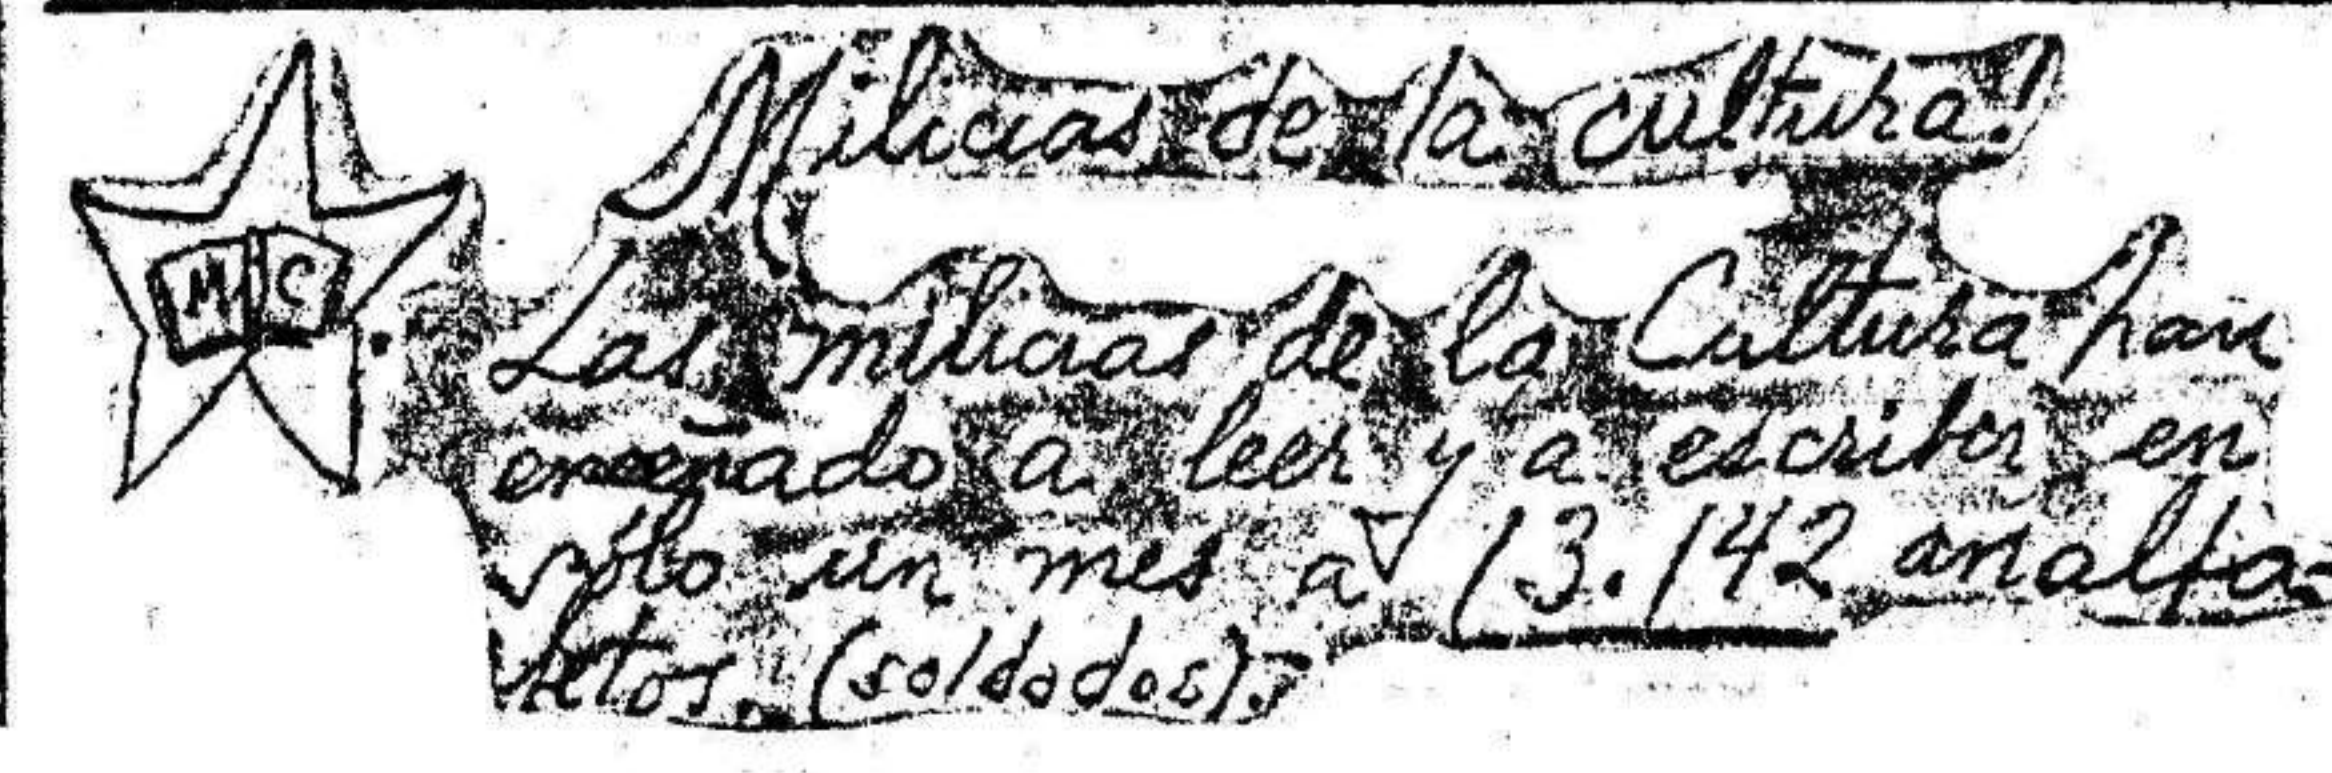 Milicias de la cultura!
M C
Las milicias de la Cultura han
enseñado a leer y a escribir en
sólo un mes a 13.142 analfa-
betos. (soldados).